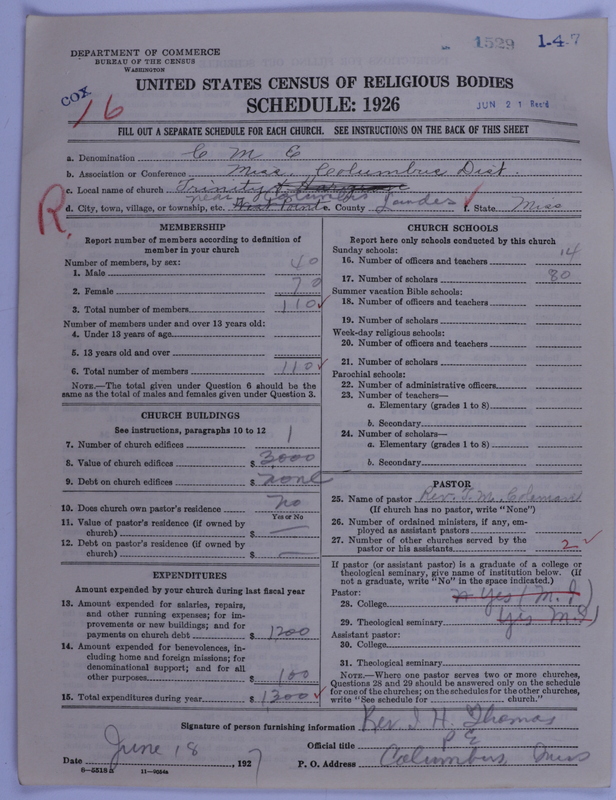 1529 1-4-7
DEPARTMENT OF COMMERCE
BUREAU OF THE CENSUS
WASHINGTON
COX
16
UNITED STATES CENSUS OF RELIGIOUS BODIES
SCHEDULE: 1926
JUN 21 Rec'd
FILL OUT A SEPARATE SCHEDULE FOR EACH CHURCH. SEE INSTRUCTIONS ON THE BACK OF THIS SHEET
a. Denomination C M E
b. Association or Conference Miss. Columbus Dist.
c. Local name of church Trinity
near Columbus
d. City, town, village, or township, etc. West Point e. County Loundes f. State Miss
R.
MEMBERSHIP
Report number of members according to definition of member in your church
Number of members, by sex:
1. Male 40
2. Female 70
3. Total number of members 110
Number of members under and over 13 years old:
4. Under 13 years of age
5. 13 years old and over
6. Total number of members 110
NOTE.—The total given under Question 6 should be the same as the total of males and females given under Question 3.
CHURCH BUILDINGS
See instructions, paragraphs 10 to 12
7. Number of church edifices 1
8. Value of church edifices $ 3000
9. Debt on church edifices $ none
10. Does church own pastor's residence no
Yes or No
11. Value of pastor's residence (if owned by church) $ —
12. Debt on pastor's residence (if owned by church) $ —
EXPENDITURES
Amount expended by your church during last fiscal year
13. Amount expended for salaries, repairs, and other running expenses; for improvements or new buildings; and for payments on church debt $ 1200
14. Amount expended for benevolences, including home and foreign missions; for denominational support; and for all other purposes $ 100
15. Total expenditures during year $ 1300
CHURCH SCHOOLS
Report here only schools conducted by this church
Sunday schools:
16. Number of officers and teachers 14
17. Number of scholars 80
Summer vacation Bible schools:
18. Number of officers and teachers
19. Number of scholars
Week-day religious schools:
20. Number of officers and teachers
21. Number of scholars
Parochial schools:
22. Number of administrative officers
23. Number of teachers—
a. Elementary (grades 1 to 8)
b. Secondary
24. Number of scholars—
a. Elementary (grades 1 to 8)
b. Secondary
PASTOR
25. Name of pastor Rev. T. M. Coleman
(If church has no pastor, write "None")
26. Number of ordained ministers, if any, employed as assistant pastors
27. Number of other churches served by the pastor or his assistants 2
If pastor (or assistant pastor) is a graduate of a college or theological seminary, give name of institution below. (If not a graduate, write "No" in the space indicated.)
Pastor:
28. College Yes (M. I)
29. Theological seminary Yes M. I)
Assistant pastor:
30. College
31. Theological seminary
NOTE.—Where one pastor serves two or more churches, Questions 28 and 29 should be answered only on the schedule for one of the churches; on the schedules for the other churches, write "See schedule for church."
Signature of person furnishing information Rev. I. H. Thomas
Official title P E
Date June 18, 1927 P. O. Address Columbus, Miss
8-5518a 11-9054a